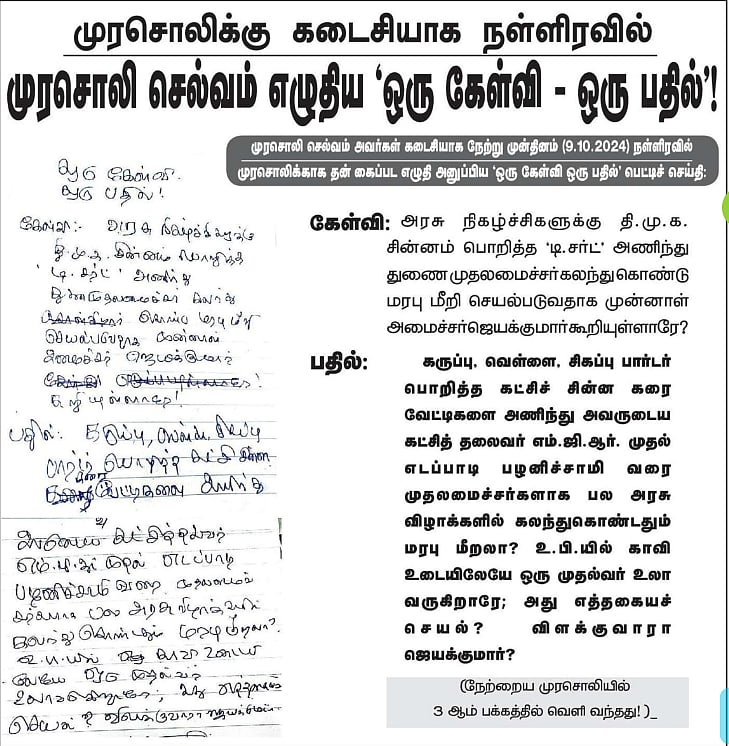 முரசொலிக்கு கடைசியாக நள்ளிரவில்
முரசொலி செல்வம் எழுதிய ‘ஒரு கேள்வி - ஒரு பதில்’!
முரசொலி செல்வம் அவர்கள் கடைசியாக நேற்று முன்தினம் (9.10.2024) நள்ளிரவில்
முரசொலிக்காக தன் கைப்பட எழுதி அனுப்பிய ‘ஒரு கேள்வி ஒரு பதில்’ பெட்டிச் செய்தி:
ஒரு கேள்வி
ஒரு பதில்!
கேள்வி:- அரசு நிகழ்ச்சிகளுக்கு
தி.மு.க. சின்னம் பொறித்த
‘டி. சர்ட்’ அணிந்து
துணைமுதலமைச்சர் கலந்து
கொண்டு மரபு மீறி
செயல்படுவதாக முன்னாள்
அமைச்சர் ஜெயக்குமார்
கூறியுள்ளாரே!
பதில்: கருப்பு, வெள்ளை, சிகப்பு
பார்டர் பொறித்த கட்சி சின்ன
கரை வேட்டிகளை அணிந்து
அவருடைய கட்சித்தலைவர்
எம்.ஜி.ஆர். முதல் எடப்பாடி
பழனிச்சாமி வரை முதலமைச்
சர்களாக பல அரசு விழாக்களில்
கலந்து கொண்டதும் மரபு மீறலா?
உ.பி.யில் காவி உடையி
லேயே ஒரு முதல்வர்
உலாவருகிறாரே; அது எத்தகைய
செயல்? விளக்குவாரா ஜெயக்குமார்?
கேள்வி: அரசு நிகழ்ச்சிகளுக்கு தி.மு.க.
சின்னம் பொறித்த ‘டி.சர்ட்’ அணிந்து
துணைமுதலமைச்சர்கலந்துகொண்டு
மரபு மீறி செயல்படுவதாக முன்னாள்
அமைச்சர்ஜெயக்குமார்கூறியுள்ளாரே?
பதில்: கருப்பு, வெள்ளை, சிகப்பு பார்டர்
பொறித்த கட்சிச் சின்ன கரை
வேட்டிகளை அணிந்து அவருடைய
கட்சித் தலைவர் எம்.ஜி.ஆர். முதல்
எடப்பாடி பழனிச்சாமி வரை
முதலமைச்சர்களாக பல அரசு
விழாக்களில் கலந்துகொண்டதும்
மரபு மீறலா? உ.பி.யில் காவி
உடையிலேயே ஒரு முதல்வர் உலா
வருகிறாரே; அது எத்தகையச்
செயல்? விளக்குவாரா
ஜெயக்குமார்?
(நேற்றைய முரசொலியில்
3 ஆம் பக்கத்தில் வெளி வந்தது! )_